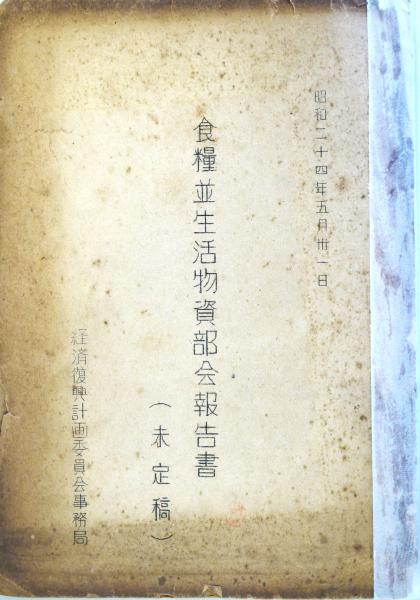 昭和二十四年五月卅一日
食糧並生活物資部会報告書
(未定稿)
経済復興計画委員会事務局